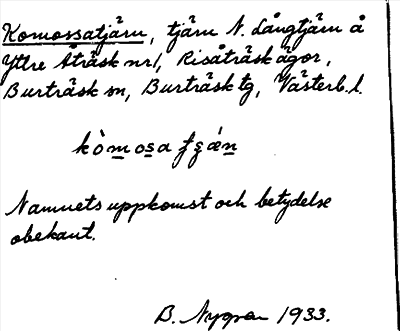 Komossatjärn, tjärn N. Långtjärn å
Yttre Åträsk nr 1, Risåträsk ägor,
Burträsk sn, Burträsk tg, Västerb. l.
Namnets uppkomst och betydelse
obekant.
B. Nygren 1933.